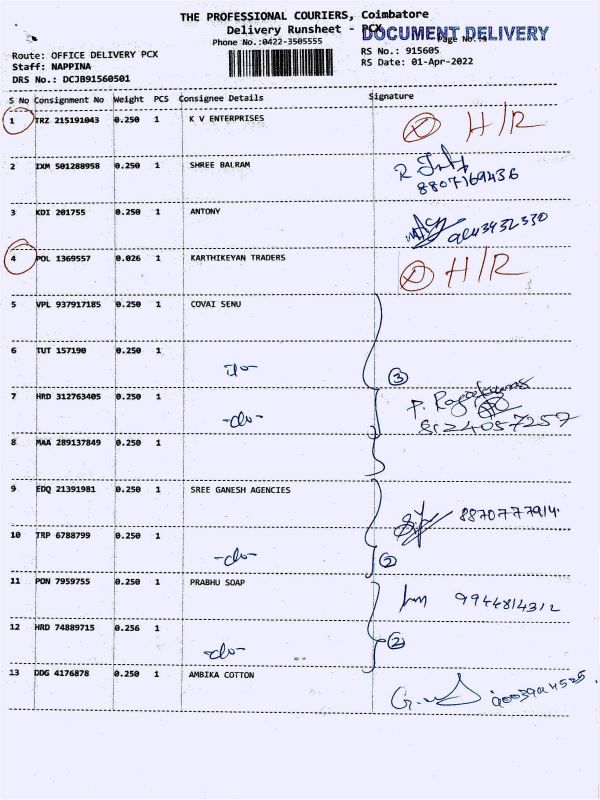 THE PROFESSIONAL COURIERS, Coimbatore
Delivery Runsheet - PCX
DOCUMENT DELIVERY
Phone No.:0422-3505555
Page No.
Route: OFFICE DELIVERY PCX
RS No.: 915605
Staff: NAPPINA
RS Date: 01-Apr-2022
DRS No.: DCJB91560501
S No Consignment No Weight PCS Consignee Details Signature
1 TRZ 215191043 0.250 1 K V ENTERPRISES H/R
2 IXM 501288958 0.250 1 SHREE BALRAM
8807169436
3 KDI 201755 0.250 1 ANTONY
4 POL 1369557 0.026 1 KARTHIKEYAN TRADERS H/R
5 VPL 937917185 0.250 1 COVAI SENU
6 TUT 157190 0.250 1
-do-
3
7 HRD 312763405 0.250 1
-do-
8124057257
8 MAA 289137849 0.250 1
9 EDQ 21391981 0.250 1 SREE GANESH AGENCIES
8870777914
10 TRP 6788799 0.250 1
-do-
2
11 PON 7959755 0.250 1 PRABHU SOAP
9944814312
12 HRD 74889715 0.256 1
-do-
2
13 DDG 4176878 0.250 1 AMBIKA COTTON